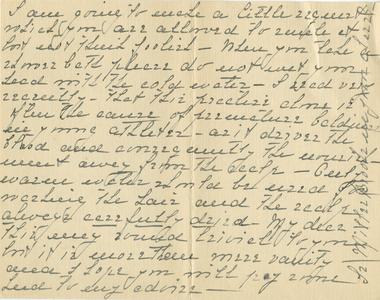 I am going to make a little request
which you are allowed to smile at
but not think foolish – When you take a
shower bath please do not wet your
head with the cold water – I read very
recently – that this practice alone is
often the cause of premature baldness
in young athletes – as it drives the
blood and consequently the nourish-
ment away from the scalp – Only
warm water should be used for
washing the hair and the scalp
always carefully dried – My dear
this may sound trivial to you
but it is more than mere vanity
and I hope you will pay some
heed to my advice –